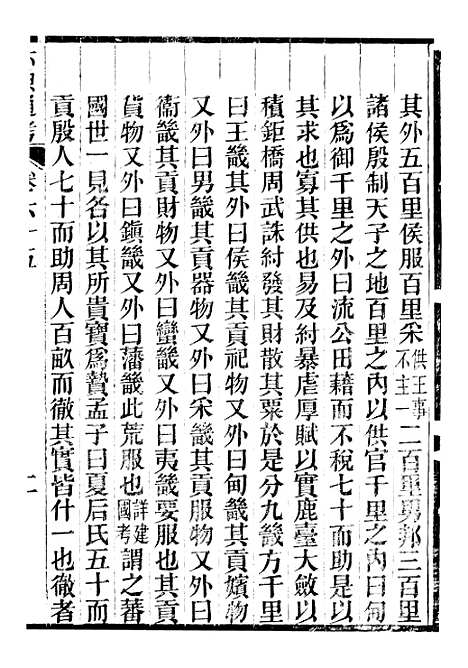 其外五百里侯服百里采供王事不主一二百里男邦三百里
諸侯殷制天子之地百里之內以供官千里之內曰甸
以爲御千里之外曰流公田藉而不稅七十而助是以
其求也寡其供也易及紂暴虐厚賦以實鹿臺大斂以
積鉅橋周武誅紂發其財散其粟於是分九畿方千里
曰王畿其外曰侯畿其貢祀物又外曰甸畿其貢嬪物
又外曰男畿其貢器物又外曰采畿其貢服物又外曰
衞畿其貢財物又外曰蠻畿又外曰夷畿要服也其貢
貨物又外曰鎭畿又外曰藩畿此荒服也詳建國考謂之蕃
國世一見各以其所貴寶爲贄孟子曰夏后氏五十而
貢殷人七十而助周人百畝而徹其實皆什一也徹者
卷六十五
二